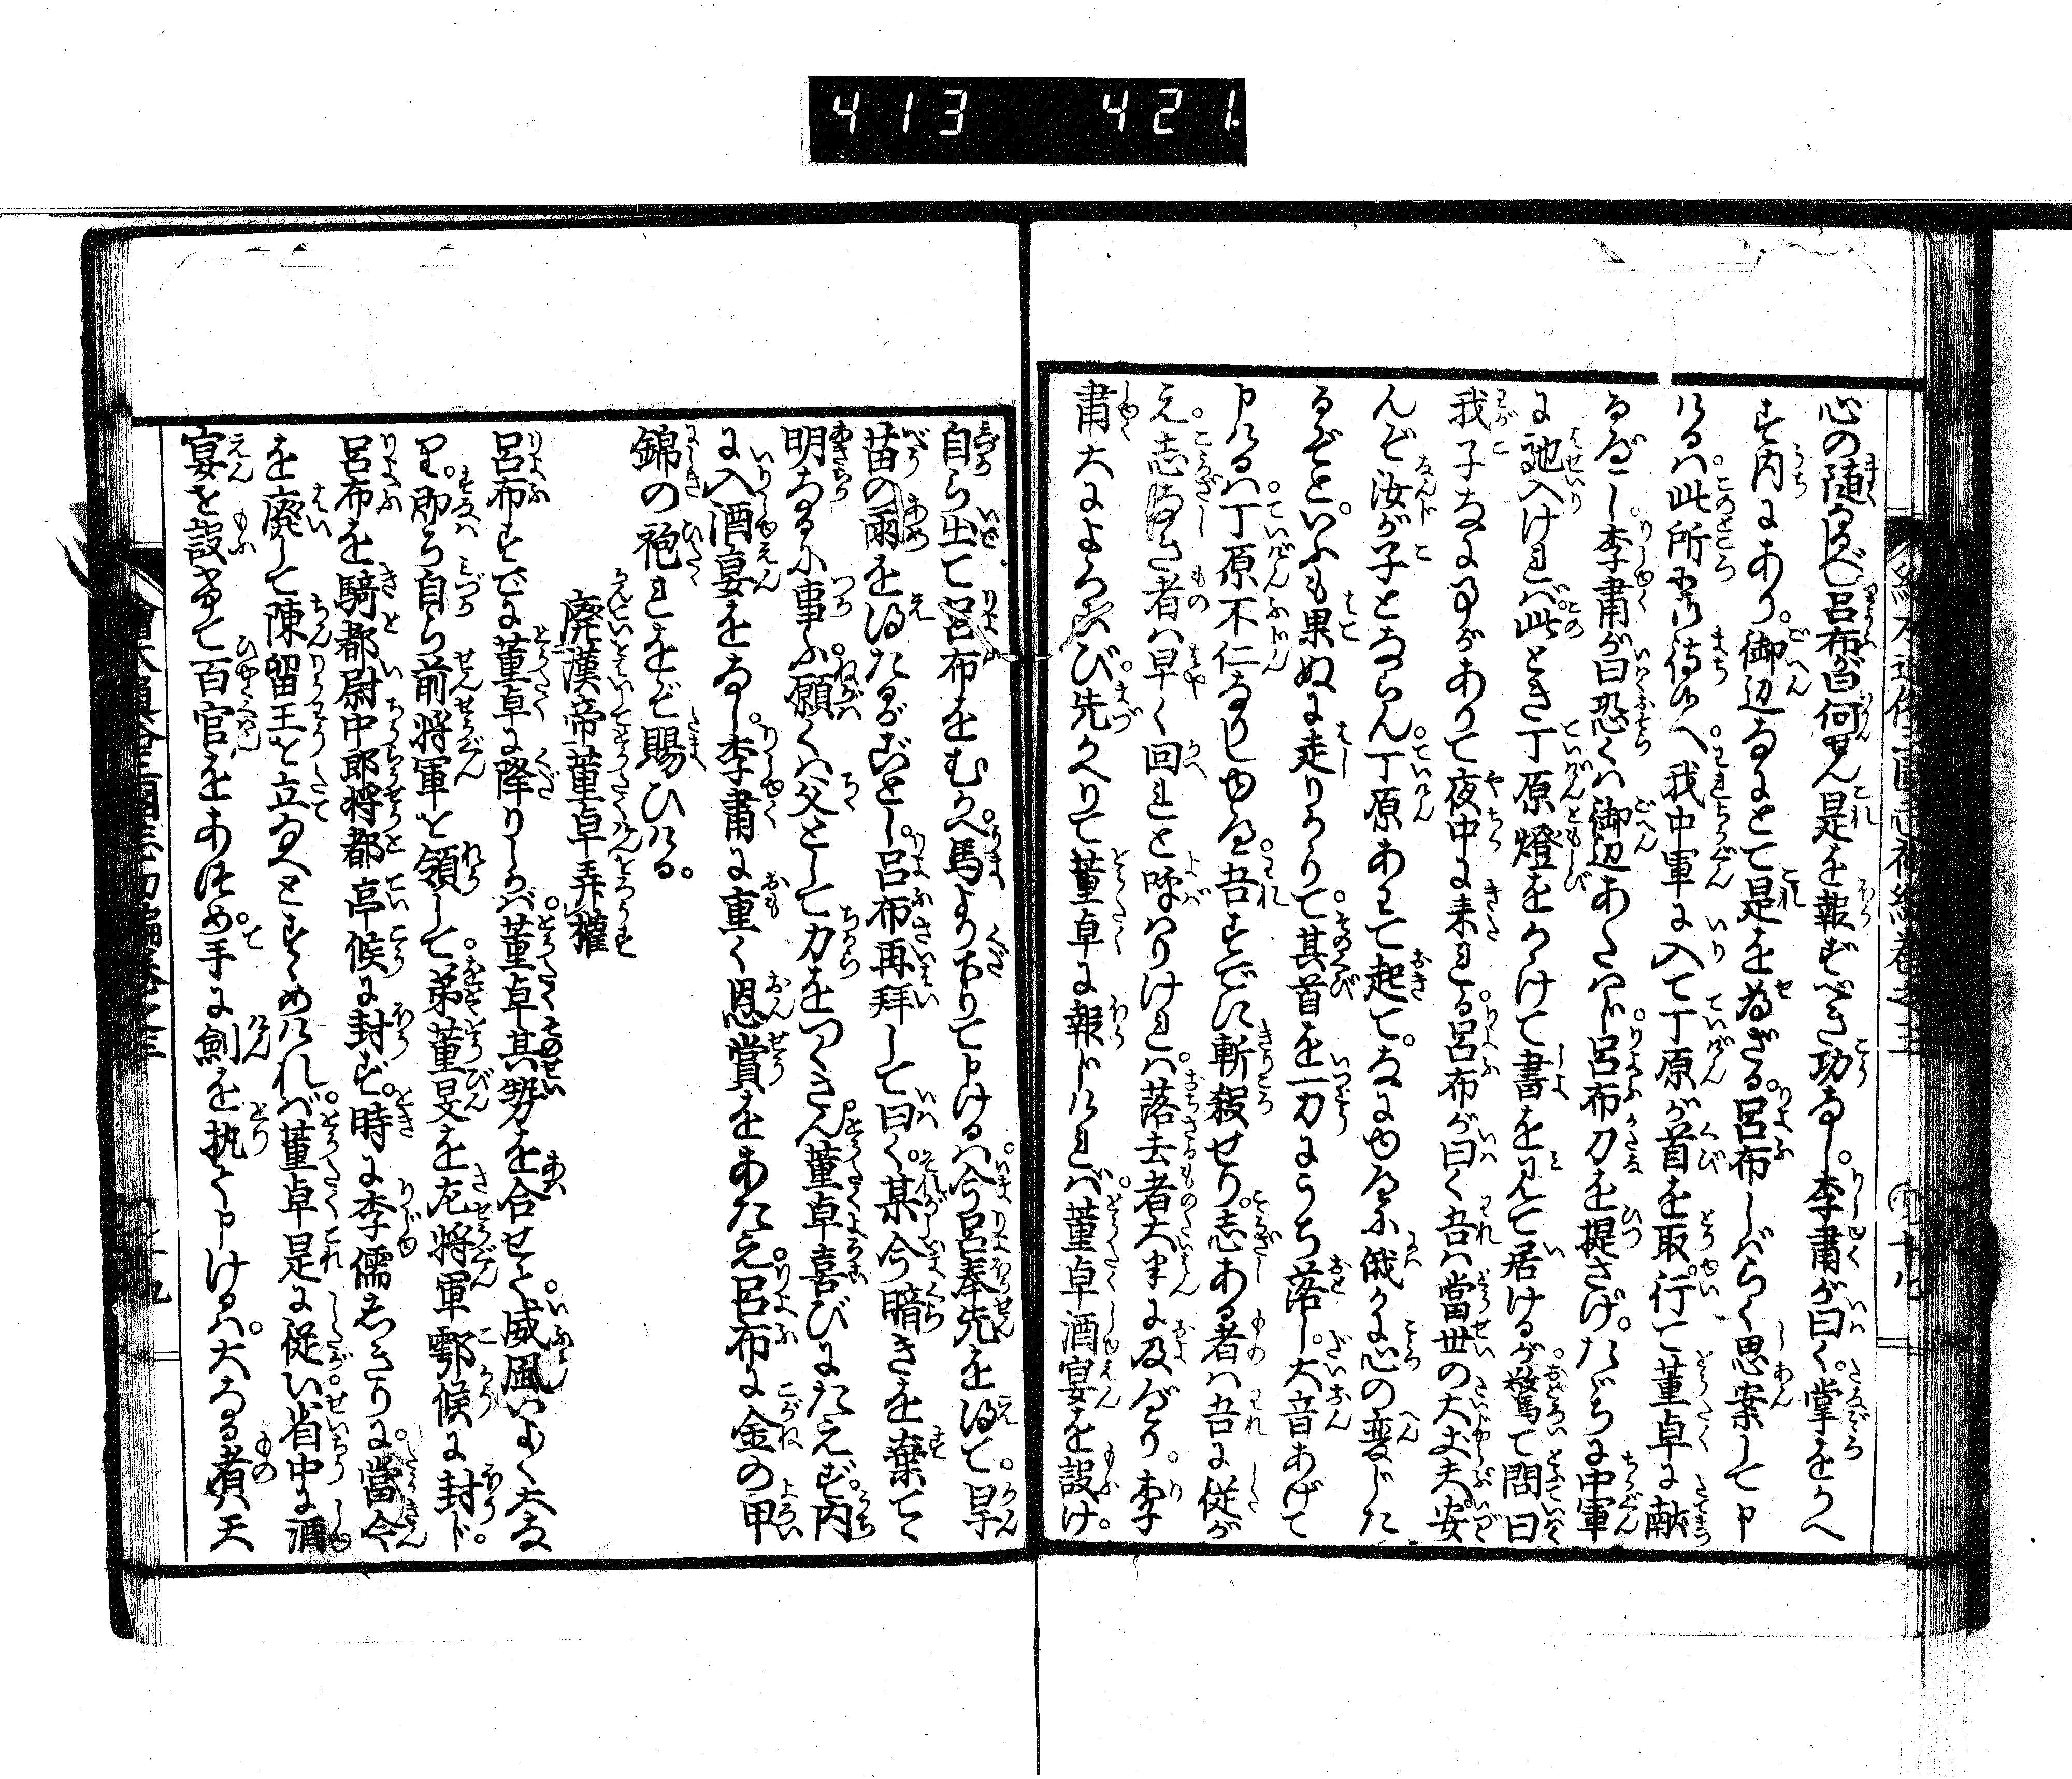 413 421.
心の随なるべし呂布が曰何ぞ是を報ずべき功なし李粛が曰く掌をかへ
す内にあり御辺なにとて是を為ざる呂布しばらく思案して申
けるハ此所にて待ゆへ我中軍に入て丁原が首を取行て董卓に献
るべし李粛が曰恐くハ御辺あたハド呂布刀を提さげたゞちに中軍
に馳入けれバ此とき丁原燈をかけて書を見て居けるが驚て問曰
我子なに事ありて夜中に来れる呂布が曰く吾ハ當世の大丈夫安
んぞ汝が子とならん丁原あハて起てなにゆゑに俄かに心の変じた
るぞといふも果ぬに走りかゝりて其首を一刀にうち落し大音あげて
申けるハ丁原不仁なりしゆゑ吾すでに斬殺せり志ある者ハ吾に従が
え志なき者ハ早く回れと呼ハりけれバ落去者大半に及びけり李
粛大によろこび先かへりて董卓に報ドけれバ董卓酒宴を設け
自ら出て呂布をむかへ馬より下りて申けるハ今呂奉先を得て旱
苗の雨を得たるがごとし呂布再拝して曰く某今暗きを棄てて
明なるに事ふ願くハ父として力をつくさん董卓喜びにたえず内
に入酒宴をなし李粛に重く恩賞をあたえ呂布に金の甲
錦の袍れをぞ賜ひける
廃漢帝董卓弄權
呂布すでに董卓に降りしかバ董卓其勢を合せて威風いよ〳〵大な
り即ち自ら前将軍を領して弟董旻を左将軍鄠候に封ド
呂布を騎都尉中郎将都亭候に封ず時に李儒しきりに當今
を廃して陳留王を立なへとすゝめけれバ董卓是に従い省中に酒
宴を設まうて百官をあつめ手に剣を執て申けるハ大なる者ハ天